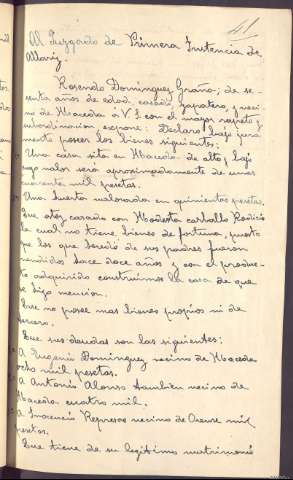 41
Al Juzgado de Primera Instancia de
Allariz
Rosendo Dominguez Graña; de se-
senta años de edad, casado, zapatero, y veci-
no de Maceda a V.S. con el mayor respeto y
subordinacion expone: Declara bajo jura-
mento poseer los bienes siguientes:
Una casa sita en Maceda de alto y bajo
cuyo valor será aproximadamente de unas
cuarenta mil pesetas.
Una huerta valorada en quinientas pesetas.
Que estoy casado con Modesta Carballo Rodicio
la cual no tiene bienes de fortuna, puesto
que los que heredó de sus padres fueron
vendidos hace doce años y con el produc-
to adquirido construimos la casa de que
se hizo mencion.
Que no posee mas bienes propios ni de
dinero.
Que sus deudas son las siguientes:
A Eugenio Dominguez vecino de Maceda
ocho mil pesetas.
A Antonio Alonso tambien vecino de
Maceda cuatro mil.
A Inocencio Represas vecino de Orense mil
pesetas.
Que tiene de su legitimo matrimonio